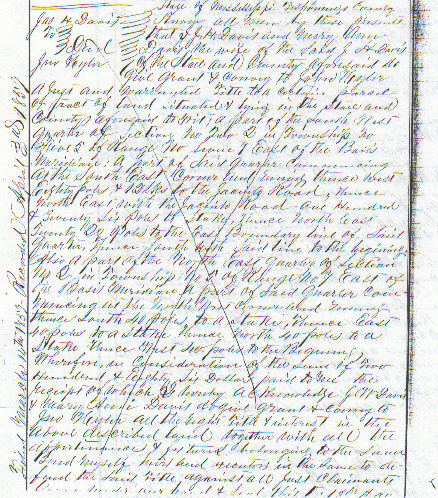 State of Mississippi Tishomingo County
Jas H. Davis Know all men by these presents
To that I J H Davis and Mary Ann
Deed Davis the wife of the said J H Davis
Jno Keyler of the State and County aforesaid do
Give Grant & Convey to John Keyler
A Just and Warranted Title to a certain Parcel
or Tract of land situated & lying in the State and
County aforesaid to wit; A part of the South West
Quarter of Section No Two 2 in Township No
Five 5 of Range No Seven 7 East of the Basis
Meridian; A part of Said Quarter Commencing
At the South East Corner and running thence West
Eighty poles & to the Jacinto Road, thence
North East with the Jacinto Road One Hundred
& Twenty Six Poles to a Stake, thence North East
Twenty Poles to the East Boundary line of Said
Quarter, thence South with Said line to the beginning
Also a part of the North East Quarter of Section
No 2 in Township No 5 of Range No 7 East of
the Basis Meridian A part of Said Quarter Com
mencing at the West Corner and running
thence South 40 poles, to a stake, thence East
40 poles to a Stake thence North 40 poles to a
Stake thence West 40 poles to the Beginning
Wherefore, in Consideration of the Sum of Two
Hundred & Eighty Six Dollars paid to me the
receipt of which is hereby acknowledge J H Davis
& Mary Ann Davis do give Grant & Convey to
Jno Keyler all the right title & interest in the
above described land together with all the
appurtenances & fixtures belonging to the Same
Bind myself, heirs and executors in the Same to de
fend the Said title, against all Just Claimants
Filed March 14th 1857 Recorded April 3rd 1857